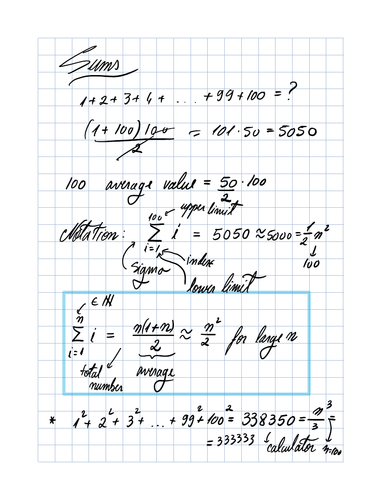 Sums
1 + 2 + 3 + 4 + ... + 99 + 100 = ?
(1 + 100) 100 / 2 = 101 · 50 = 5050
100 average value = 50/2 · 100
upper limit
Notation: 100 Σ i=1 i = 5050 ≈ 5000 = 1/2 n²
100
sigma index
lower limit
∈ ℕ
n Σ i=1 i = n(1+n)/2 ≈ n²/2 for large n
total number average
* 1² + 2² + 3² + ... + 99² + 100² = 338350 = n³/3 =
= 333333 calculator n=100